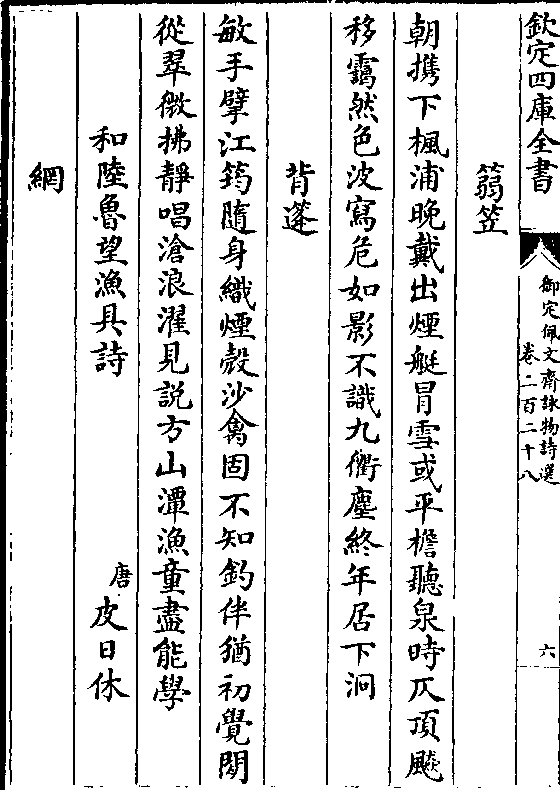 欽定四庫全書
御定佩文齋詠物詩選
卷二百二十八
六
篛笠
朝攜下楓浦晚戴出煙艇冐雪或平檐聽泉時仄頂颷
移靄然色波寫危如影不識九衢塵終年居下泂
背蓬
敏手擘江筠隨身織煙殻沙禽固不知釣伴猶初覺閒
從翠微拂靜唱滄浪濯見説方山潭漁童盡能學
和陸魯望漁具詩
唐 皮日休
網